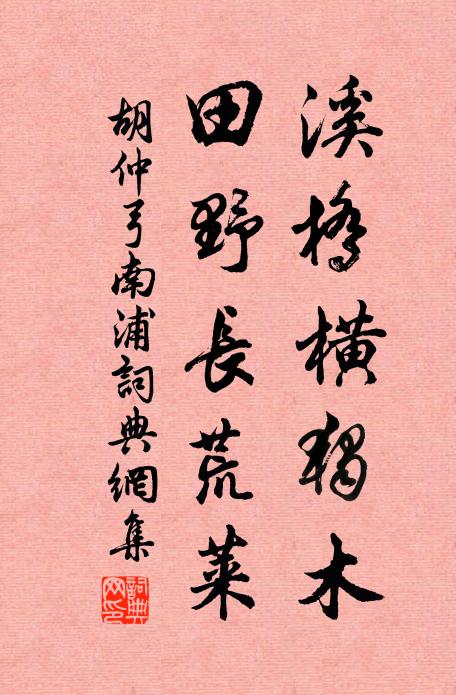 溪橋橫獨木
田野長荒萊
胡仲弓南浦詞典網集
詞典網印